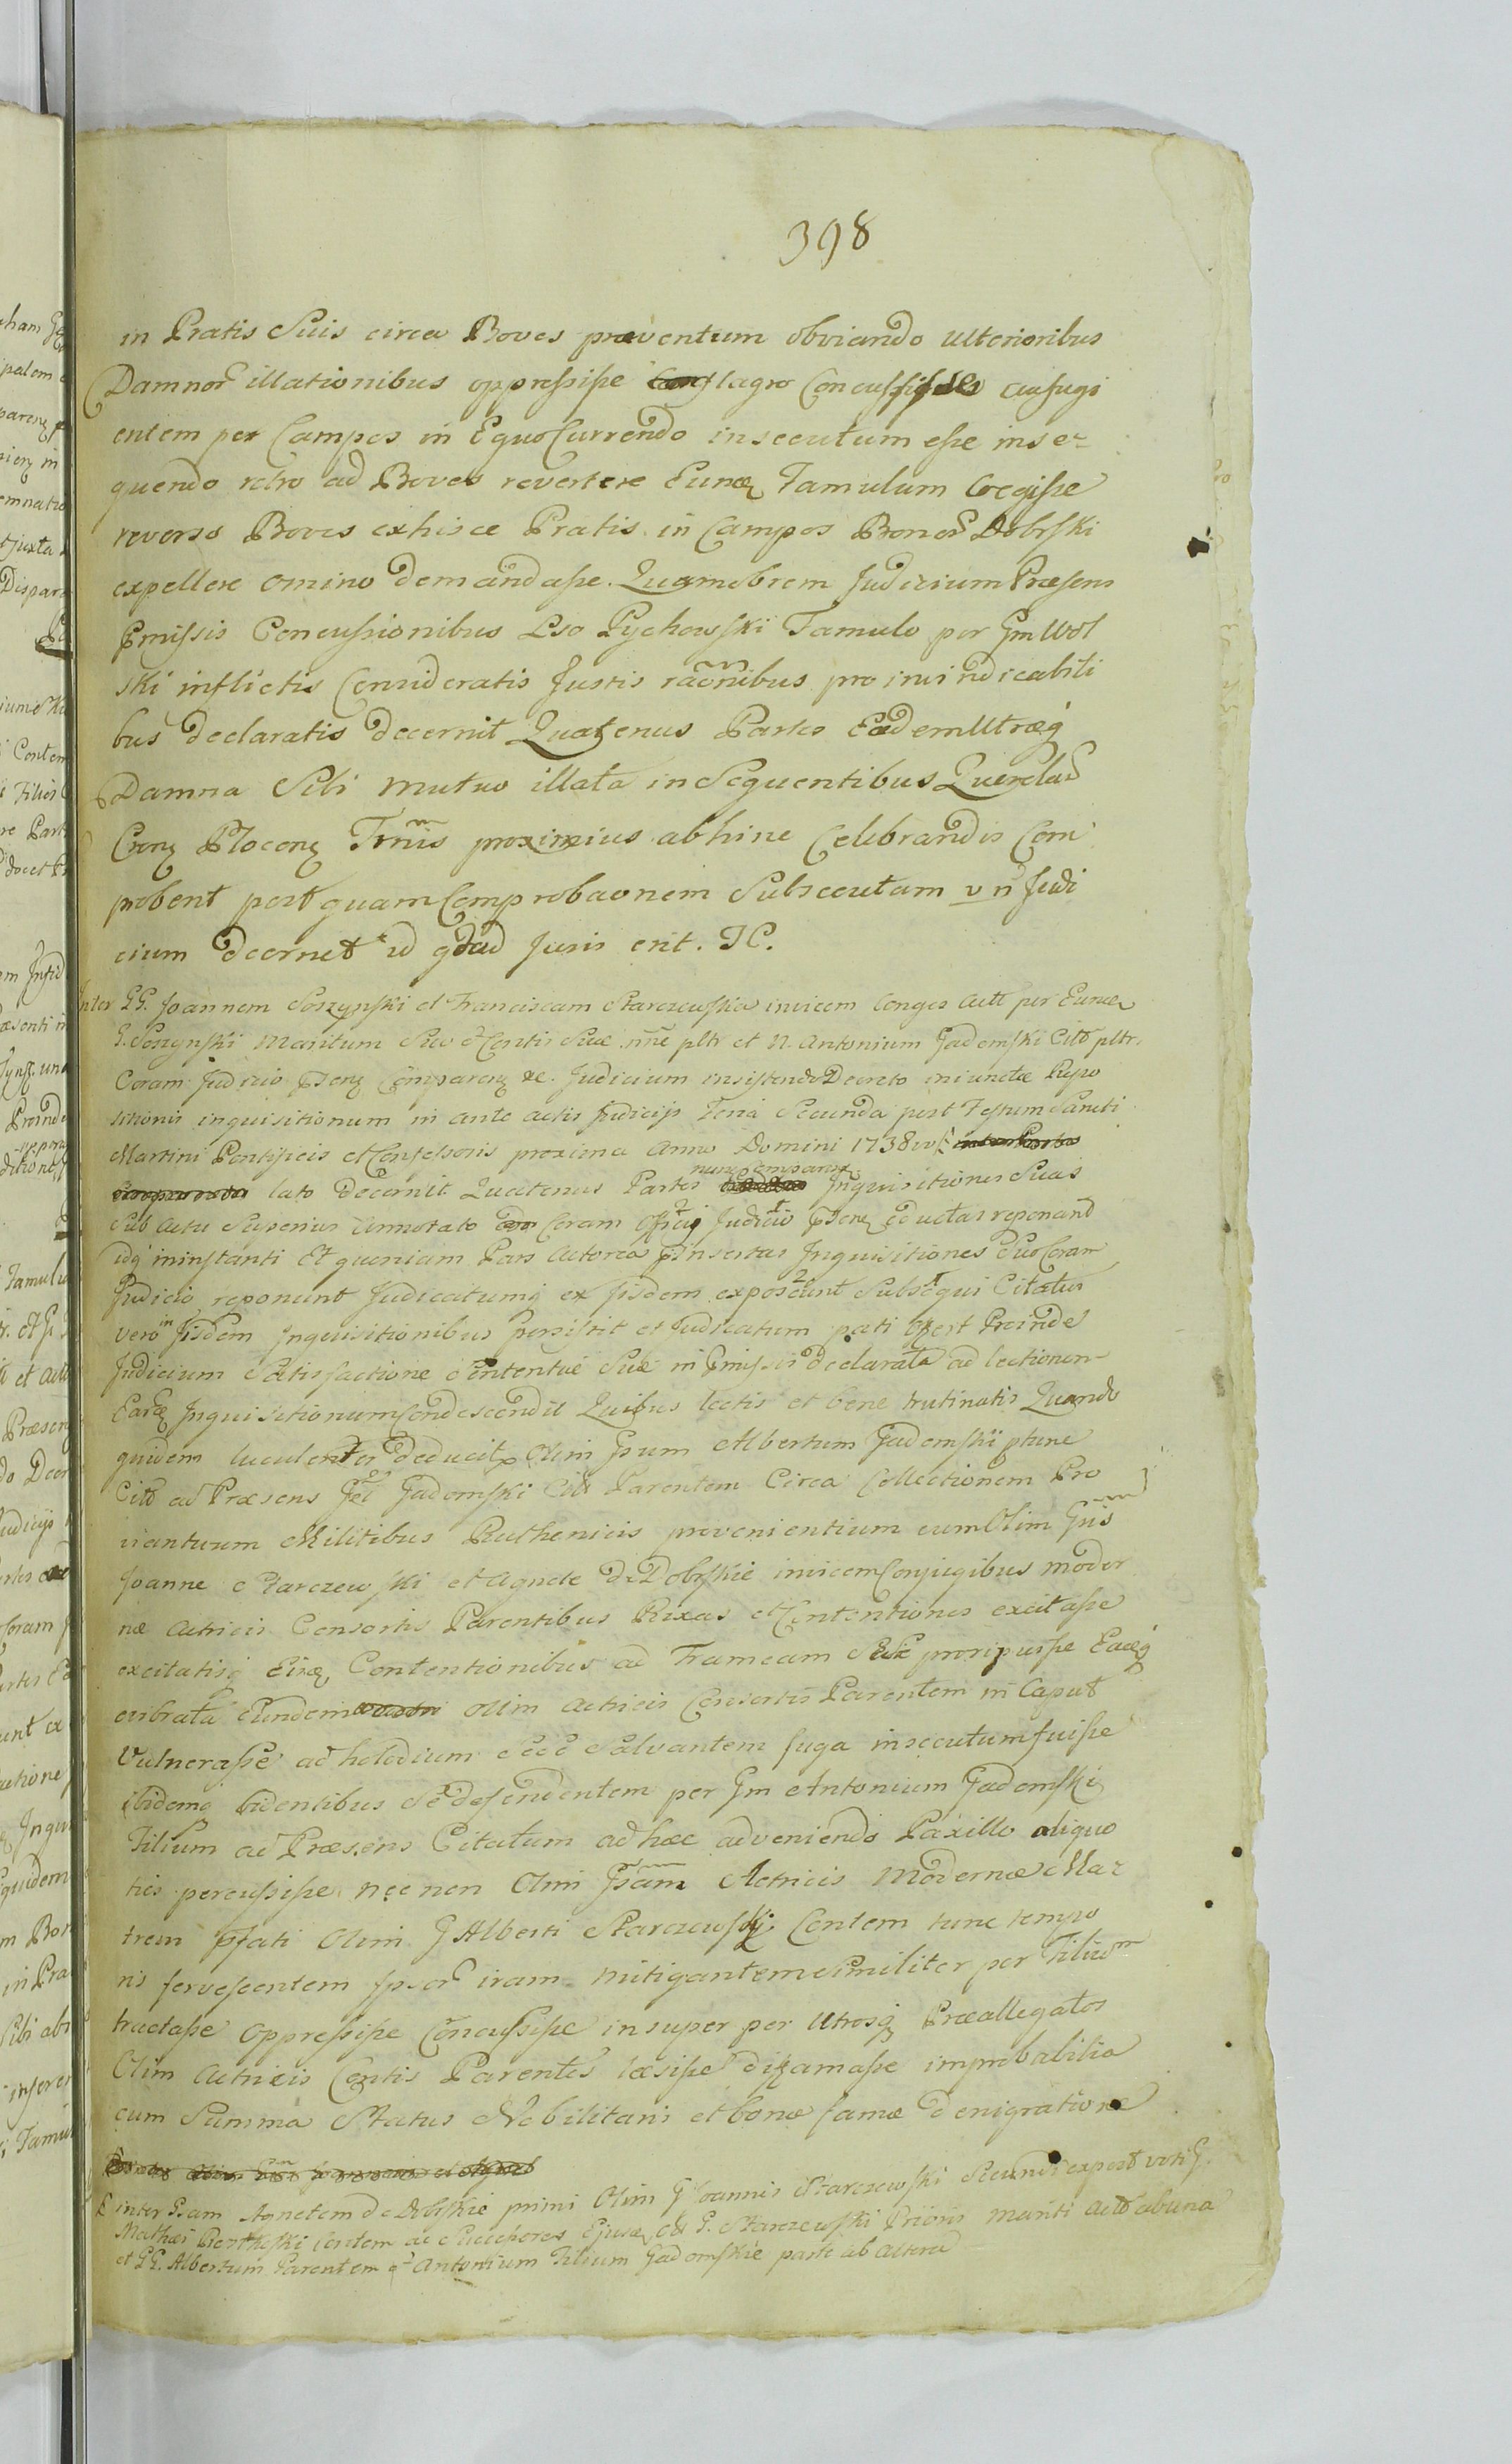 398
in Pratis Suis circa Boves præventum obviando ulterioribus
Damnor illationibus oppressisse flagro Concussisse aufugi
entem per Campos in Equo Currendo insecutum esse inse=
quendo retro ad Boves revertere Eund Famulum Coegisse
reverso Boves exhisce Pratis in Campos Bonor Dobrski
expellere omino demandasse. Quamobrem Judicium Præsens
Præmissis Concussionibus Lso Pychowski Famulo per Gm Wol
ski inflictis Consideratis Justis raönibus pro invindicabili
bus declaratis decernit Quatenus Partes Eædem Utræq
Damna Sibi mutuo illata in Sequentibus Querelar
Crens Plocens Trnis proximius abhinc Celebrandis Com
probent post quam Comprobaonem Subsecutam Judi
cium decernet id qdad Juris erit. JC.
Inter GG. Joannem Soszynski et Franciscam Starczewska invicem Conges Act per Eund
G. Soszynski Maritum Suo et Contis Suæ nne pltr et N. Antonium Gadomski Citt pltr.
Coram Judicio Psens Comparens &c. Judicium insistendo Decreto iniunctæ Repo
sitionis inquisitionum in ante actis Judicijs Feria Secunda post Festum Sancti
Martini Pontificis et Confessoris proxima Anno Domini 1738vo
lato decernit Quatenus Partes nunc comparen Inquisitiones Suas
Sub actu Superius Annotato Coram Officij Judicio Psens eductas reponant
idq ininstanti Et quoniam Pars Actorea Pinsertas Inquisitiones Suas Coram
Judicio reponunt Judicatumq ex Jisdem exposcunt Subsequi Citatus
vero in Jisdem Inquisitionibus persistit et Judicatum pati offert Proinde
Judicium Satisfactione Sententiæ Suæ in Præmissis declarata ad lectionem
Earund Inquisitionum Condescendit Quibus lectis et bene trutinatis Quando
quidem luculenter deducit Olim Gsum Albertum Gadomski ptunc
Citt ad Præsens Gadomski Citt Parentem Circa Collectionem Pro
viantuum Militibus Ruthenicis provenientium cum Olim Gsis
Joanne Starczewski et Agnete de Dobrskie invicem Conjugibus moder
næ Actricis Consortis Parentibus Rixas et Contentiones excitasse
excitatisq Eisd Contentionibus ad Frameam Sese proripuisse Eaq
evibrata Eundem olim Actricis Consortis Parentem in Caput
Vulnerasse ad holodium Sese Salvantem fuga insecutum fuisse
ibidemq bidentibus Se defendentem per Gm Antonium Gadomski
Filium ad Præsens Citatum adhæc adveniendo Paxillo aliquo
ties percussisse nec non Olim Gsam Actricis Modernæ Ma=
trem pfati Olim G Alberti Starczewski Contem tunc tempo
ris fervescentem Ipsor iram mitigantem similiter per Filium
tractasse oppressisse Concussisse insuper per Utrosq Præallegatos
Olim Actricis Contis Parentes læsisse diffamasse improbabilia
cum Summa Status Nobilitaris et bonæ famæ denigratione
inter Gsam Agnetem de Dobrskie primi Olim G Joannis Starczewski Secundi expost voti G.
Mathæi Contem ac Successores Ejusd et G. Starczewski Prioris mariti Act ab una
et GG. Albertum Parentem et Antonium Filium Gadomskie parte ab altera